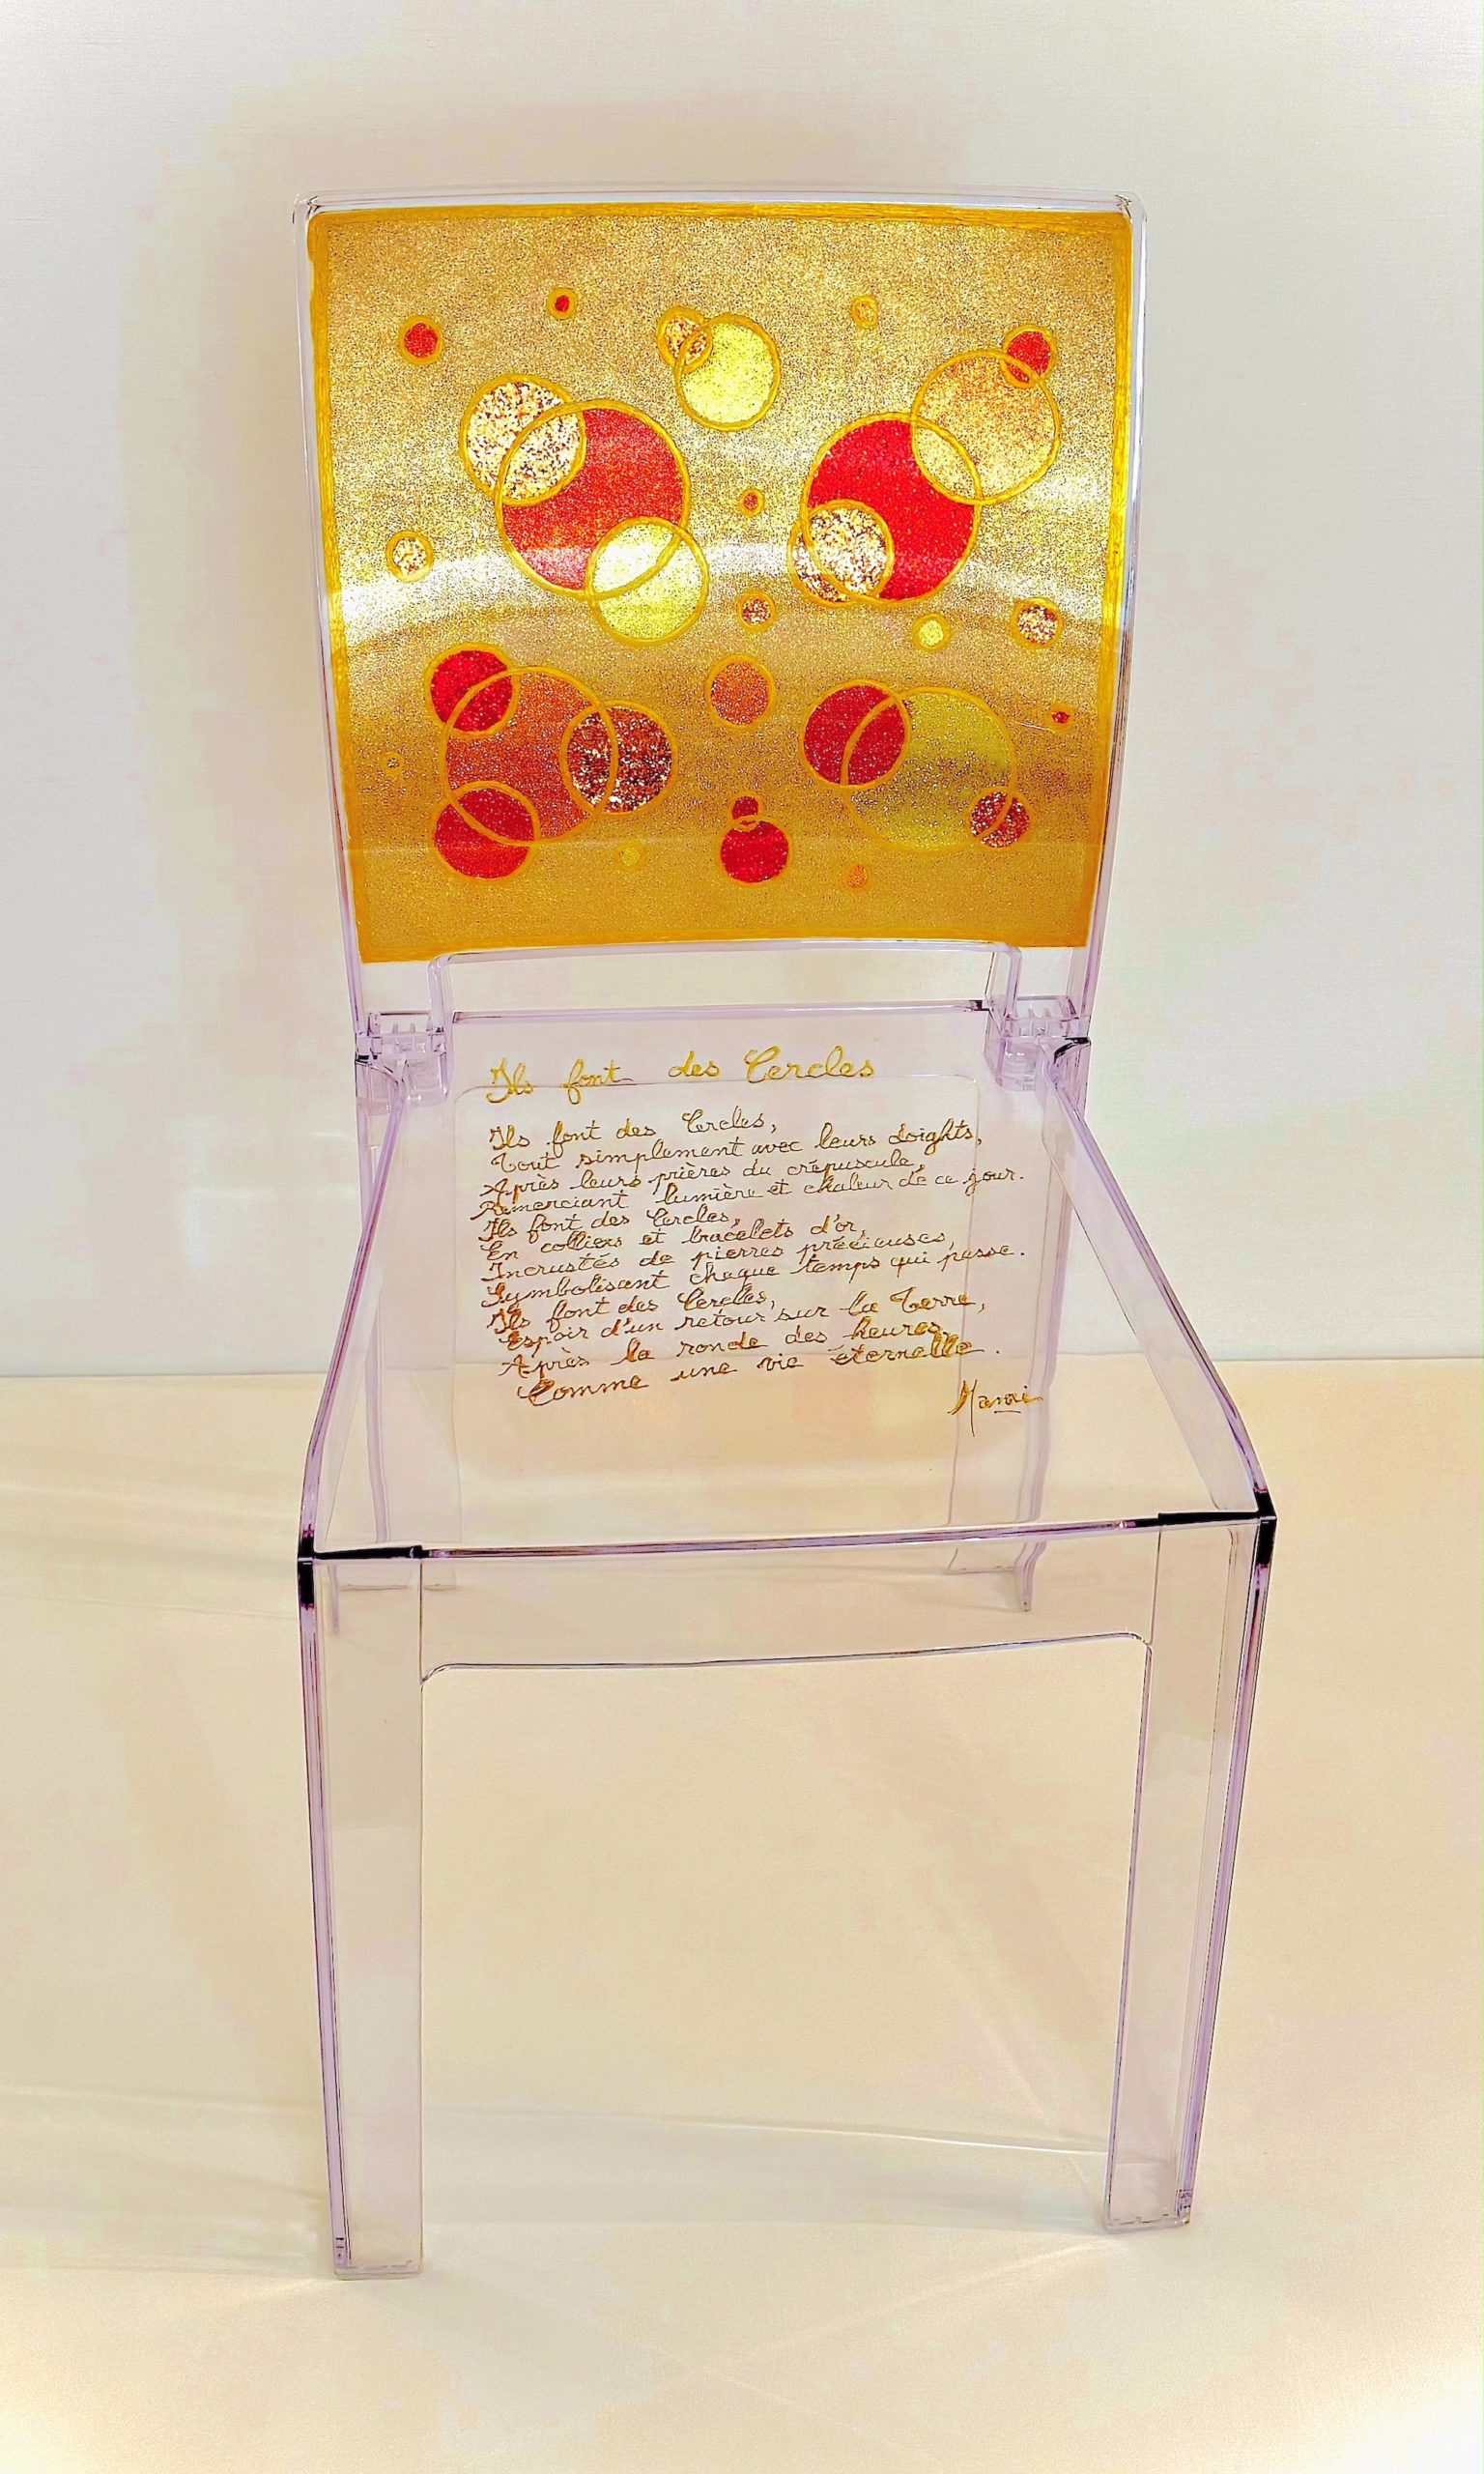 Ils font des Cercles
Ils font des Cercles,
Tout simplement avec leurs doights,
Après leurs prières du crépuscule,
Remerciant lumière et chaleur de ce jour.
Ils font des Cercles,
En colliers et bracelets d'or,
Incrustés de pierres précieuses,
Symbolisant chaque temps qui passe.
Ils font des Cercles,
Espoir d'un retour sur la Terre,
Après la ronde des heures,
Comme une vie éternelle.